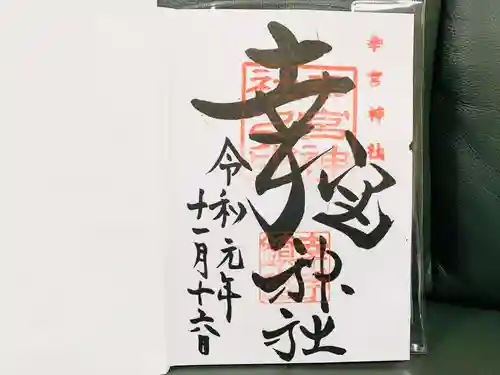 幸宮神社
幸宮神社
令和元年
十一月十六日